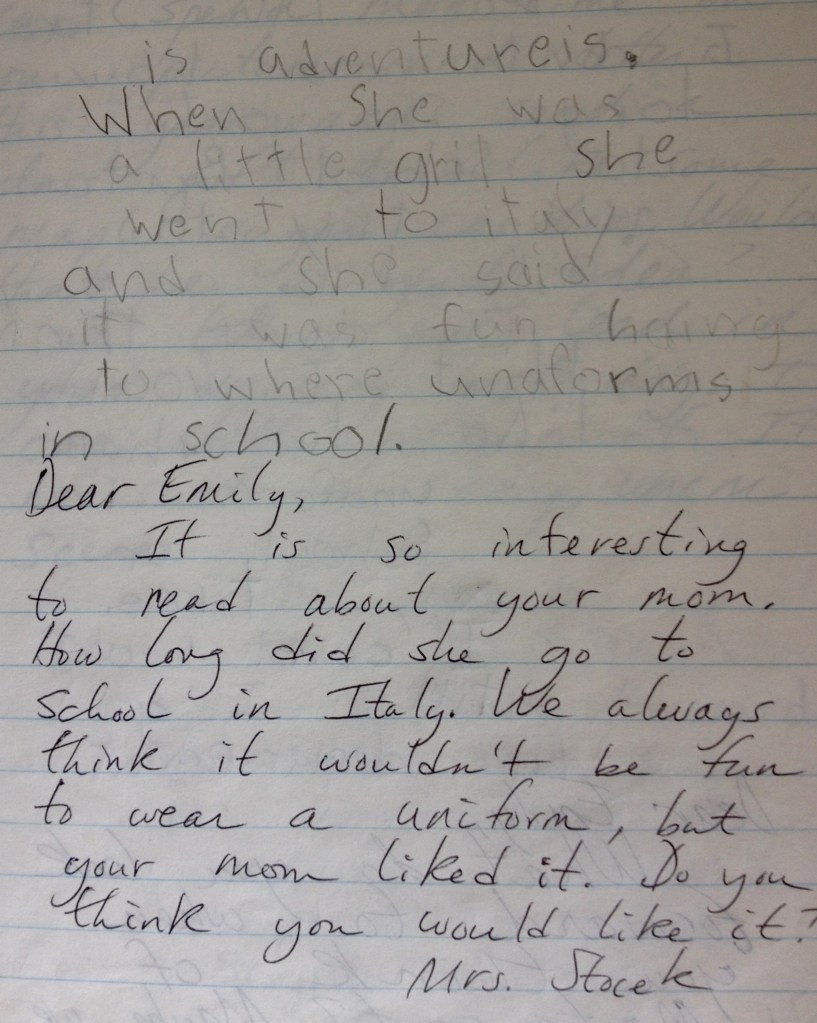 is adventureis.
When She was
a little gril she
went to italy.
and she said
it was fun haivng
to where unaforms
in school.
Dear Emily,
It is so interesting
to read about your mom.
How long did she go to
school in Italy. We always
think it wouldn't be fun
to wear a uniform, but
your mom liked it. Do you
think you would like it?
Mrs. Stocek